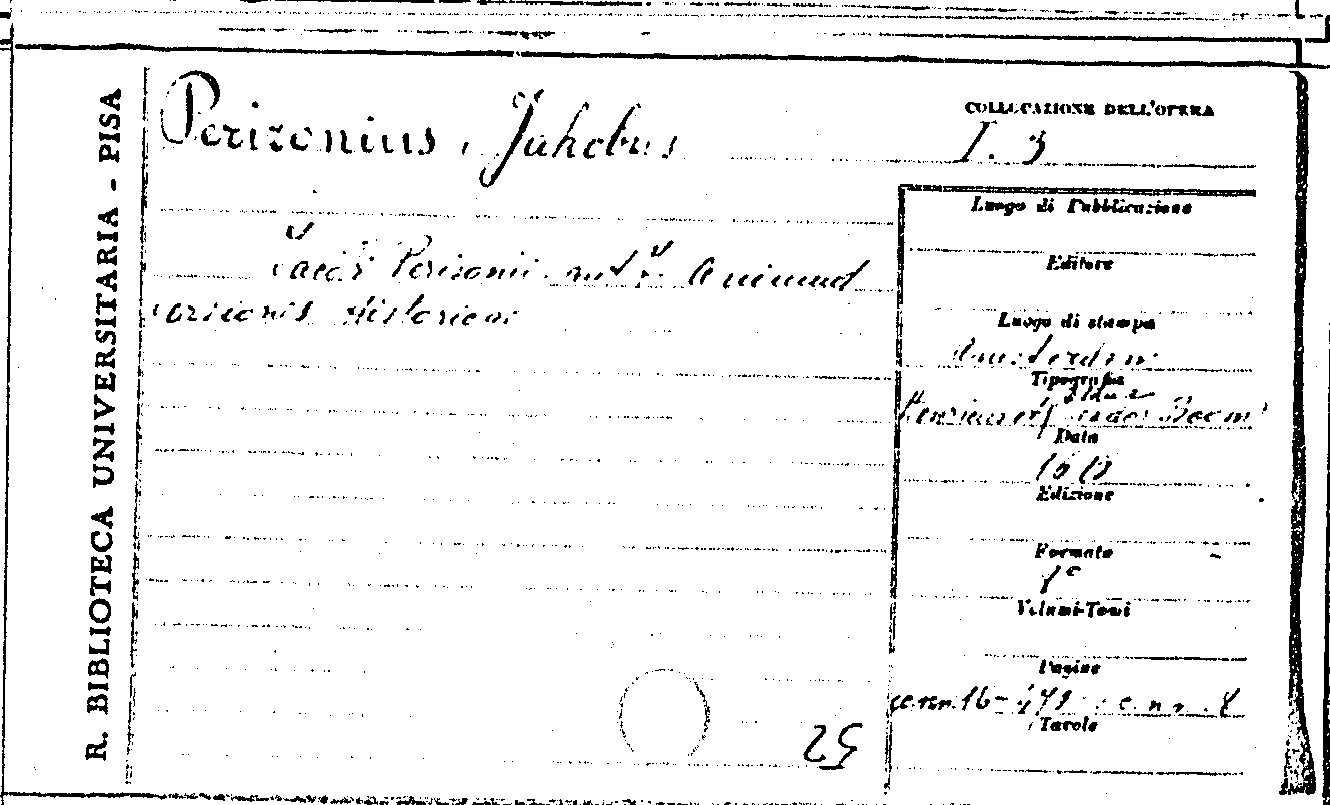 R. BIBLIOTECA UNIVERSITARIA - PISA
Perizonius, Jakobus
COLLOCAZIONE DELL'OPERA
I. 3
Perizonii Animad
versionis Historicae
Luogo di Pubblicazione
Editore
Luogo di stampa
Amsterdam
Tipografia
Boom
Data
Edizione
Formato
8°
Volumi-Tomi
Pagine
cc.nn.16-479-c.n.n.8
Tavole
52